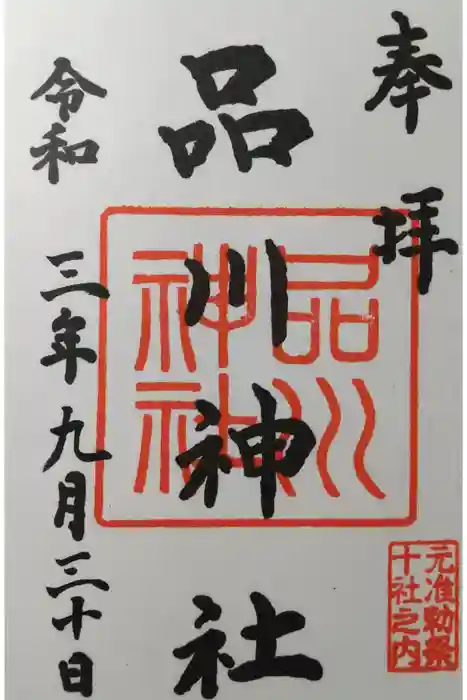 奉拝
品川神社
令和三年九月三十日
品川
神社
元准勅祭
十社之内